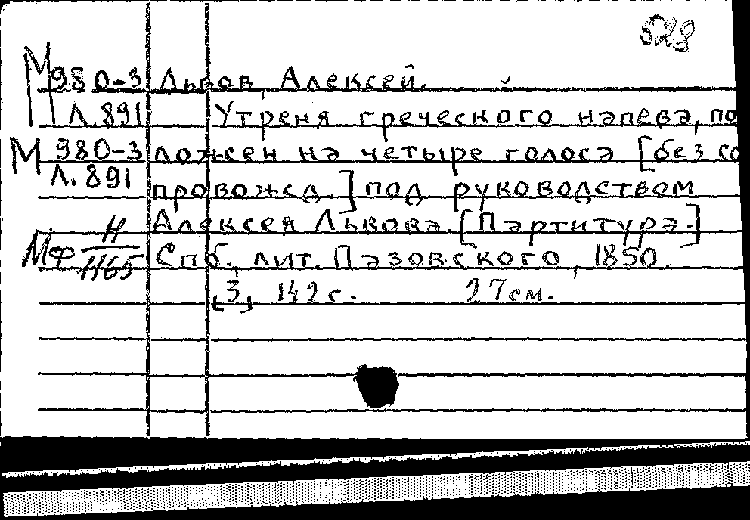 523
М 980-3 Львов, Алексей.
Л.891 Утреня греческого напева, по
М 980-3 ложен на четыре голоса [без со
Л.891 провожд.] под руководством
Алексея Львова. [Партитура.]
МФ Н/1165 Спб., лит. Пазовского, 1850.
[3], 142 с. 27 см.